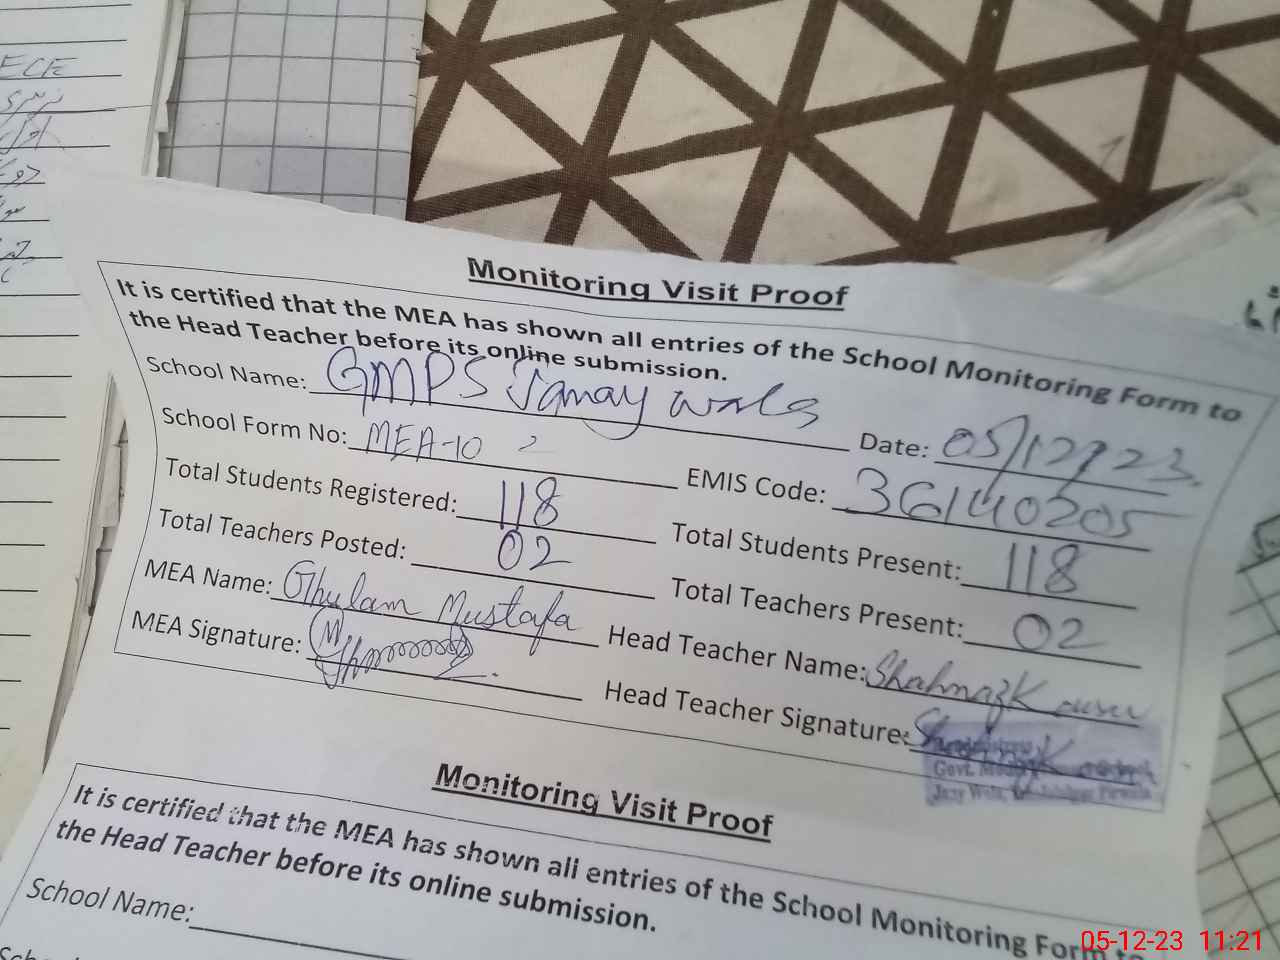 ECE
Monitoring Visit Proof
It is certified that the MEA has shown all entries of the School Monitoring Form to
the Head Teacher before its online submission.
School Name: GMPS Date: 05/12/23
School Form No: MEA-10 EMIS Code: 36140205
Total Students Registered: 118 Total Students Present: 118
Total Teachers Posted: 02 Total Teachers Present: 02
MEA Name: Ghulam Mustafa Head Teacher Name: Shahnaz Kauser
MEA Signature: Head Teacher Signature:
Monitoring Visit Proof
It is certified that the MEA has shown all entries of the School Monitoring Form to
the Head Teacher before its online submission.
School Name:
05-12-23 11:21